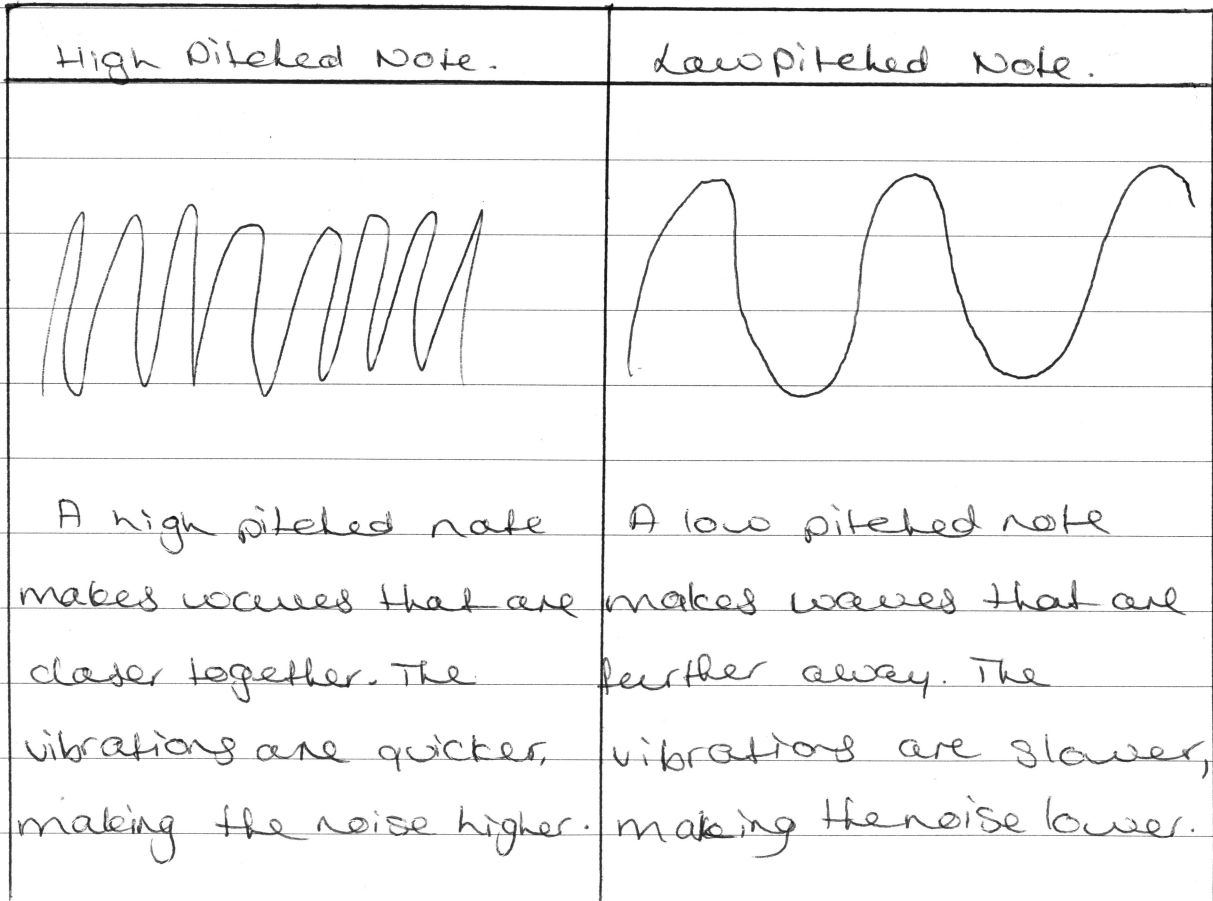 High Pitched Note.
Low Pitched Note.
A high pitched note
makes waves that are
closer together. The
vibrations are quicker,
making the noise higher.
A low pitched note
makes waves that are
further away. The
vibrations are slower,
making the noise lower.